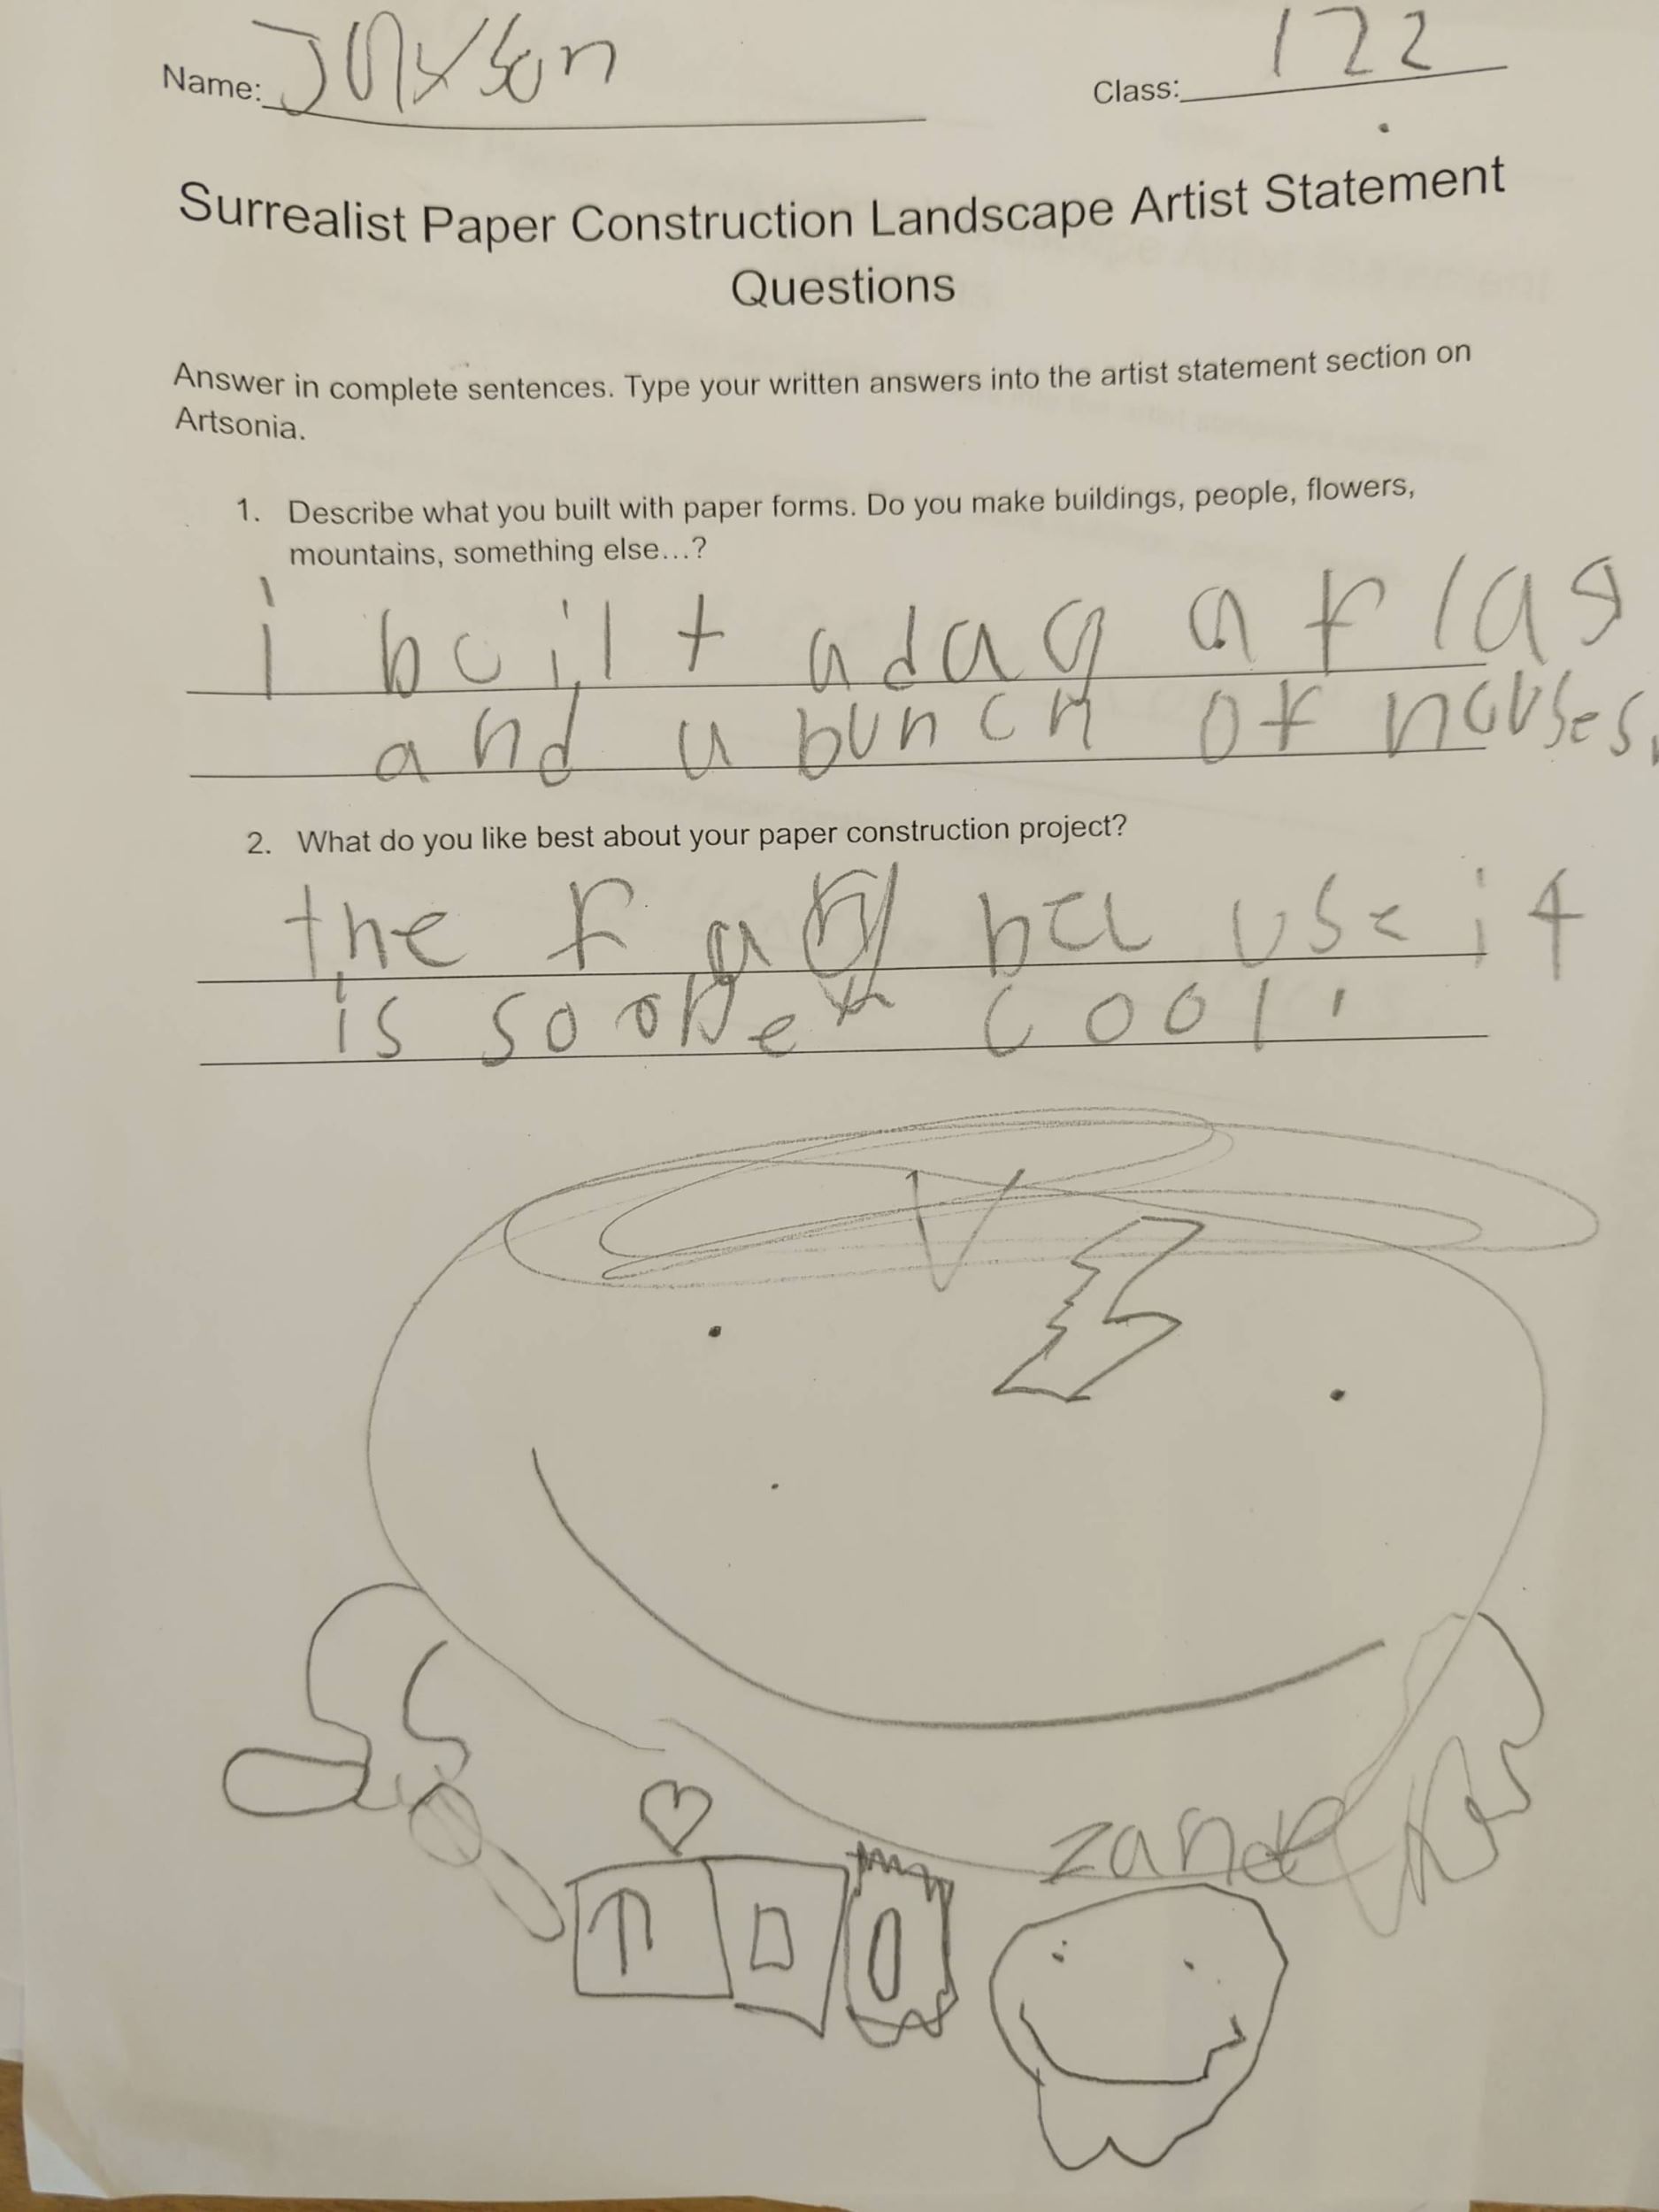 Name: Jaxson Class: 122
Surrealist Paper Construction Landscape Artist Statement
Questions
Answer in complete sentences. Type your written answers into the artist statement section on
Artsonia.
1. Describe what you built with paper forms. Do you make buildings, people, flowers,
mountains, something else...?
i built adag a flag
and a bunch of houses.
2. What do you like best about your paper construction project?
the becuse it
is cool